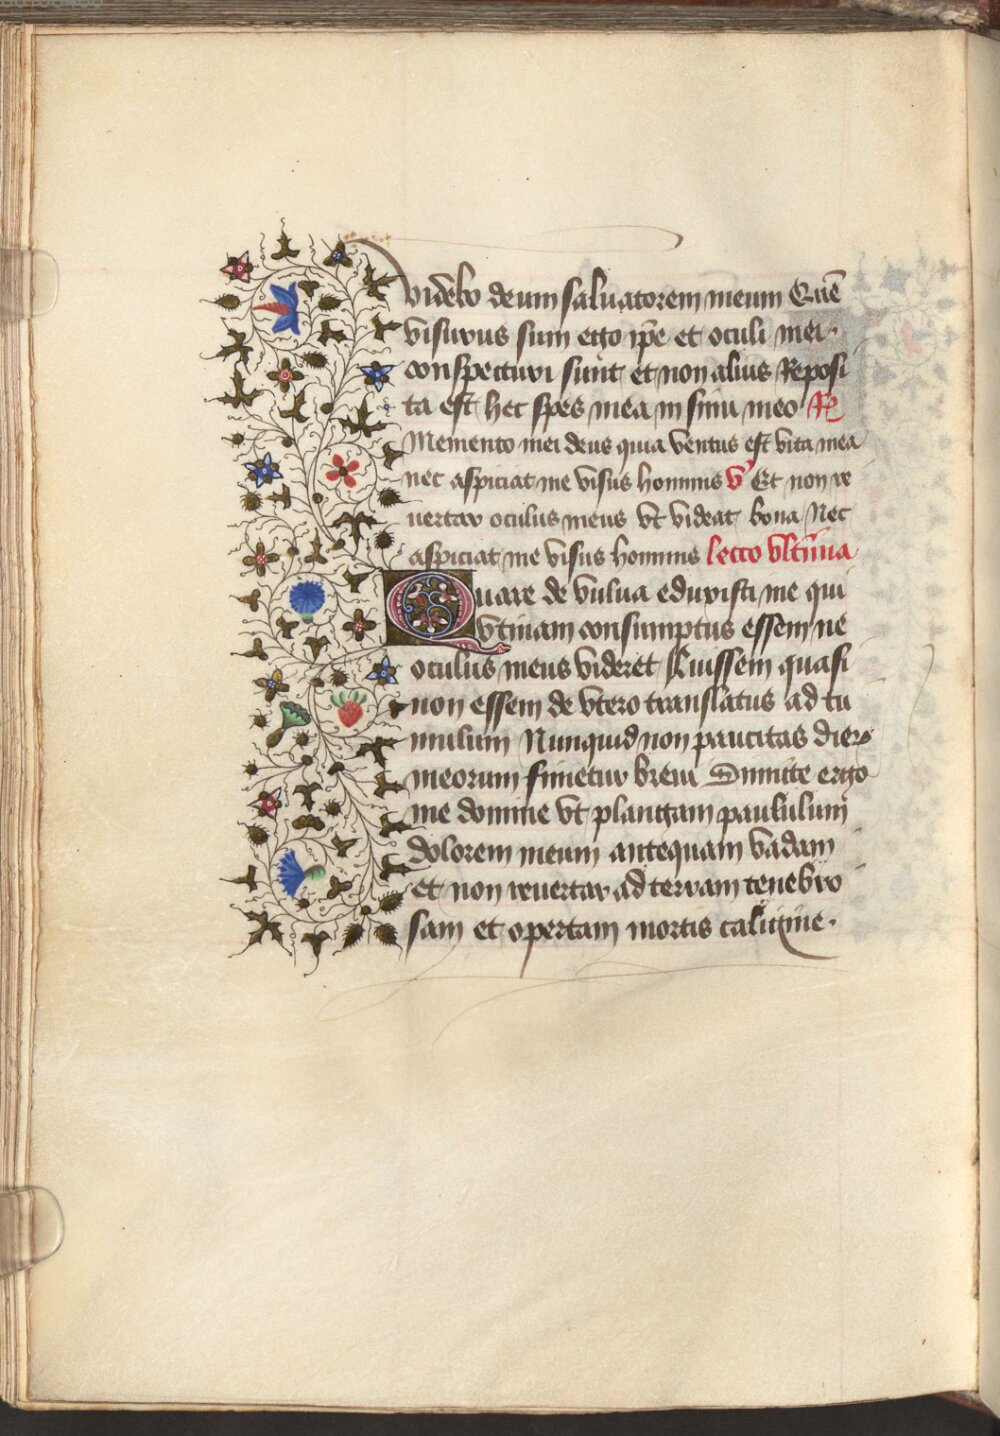 videbo deum saluatorem meum Quē
visurus sum ego ip̄e et oculi mei·
conspecturi sunt et non alius Reposi
ta est hec spes mea in sinu meo R̷
Memento mei deus quia ventus est vita mea
nec aspiciat me visus hominis v̄ Et non re
uertar oculus meus vt videat bona Nec
aspiciat me visus hominis lectio vltima
Quare de vulua eduxisti me qui
vtinam consumptus essem ne
oculus meus videret Fuissem quasi
non essem de vtero translatus ad tu
mulum Nunquid non paucitas dierꝝ
meorum finietur breui Dimitte ergo
me domine vt plangam paululum
dolorem meum antequam vadam
et non reuertar ad terram tenebro
sam et opertam mortis caligine·